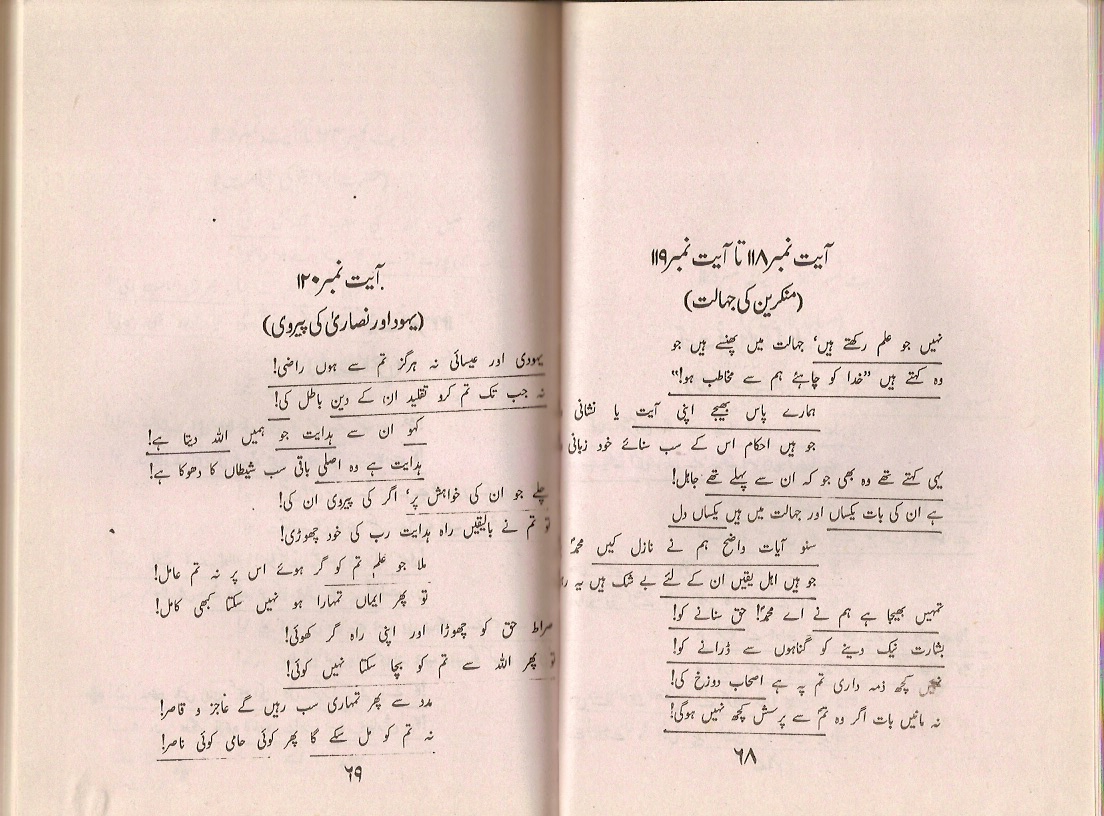 آیت نمبر ۱۱۸ تا آیت نمبر ۱۱۹
(منکرین کی جہالت)
نہیں جو علم رکھتے ہیں، جہالت میں پھنسے ہیں جو
وہ کہتے ہیں "خدا کو چاہئے ہم سے مخاطب ہو!"
ہمارے پاس بھیجے اپنی آیت یا نشانی
جو ہیں احکام اس کے سب سنائے خود زبانی
یہی کہتے تھے وہ بھی جو کہ ان سے پہلے تھے جاہل!
ہے ان کی بات یکساں اور جہالت میں ہیں یکساں دل
سنو آیات واضح ہم نے نازل کیں محمدؐ
جو ہیں اہل یقیں ان کے لئے بے شک ہیں یہ
تمہیں بھیجا ہے ہم نے اے محمدؐ! حق سنانے کو!
بشارت نیک دینے کو گناہوں سے ڈرانے کو!
نہیں کچھ ذمہ داری تم پہ ہے اصحاب دوزخ کی!
نہ مانیں بات اگر وہ تم سے پرسش کچھ نہیں ہوگی!
۶۸
آیت نمبر ۱۲۰
(یہود اور نصاریٰ کی پیروی)
یہودی اور عیسائی نہ ہرگز تم سے ہوں راضی!
نہ جب تک تم کرو تقلید ان کے دین باطل کی!
کہو ان سے ہدایت جو ہمیں اللہ دیتا ہے!
ہدایت ہے وہ اصلی باقی سب شیطاں کا دھوکا ہے!
چلے جو ان کی خواہش پر، اگر کی پیروی ان کی!
تو تم نے بالیقیں راہ ہدایت رب کی خود چھوڑی!
ملا جو علم تم کو گر ہوئے اس پر نہ تم عامل!
تو پھر ایماں تمہارا ہو نہیں سکتا کبھی کامل!
صراط حق کو چھوڑا اور اپنی راہ گر کھوئی!
تو پھر اللہ سے تم کو بچا سکتا نہیں کوئی!
مدد سے پھر تمہاری سب رہیں گے عاجز و قاصر!
نہ تم کو مل سکے گا پھر کوئی حامی کوئی ناصر!
۶۹